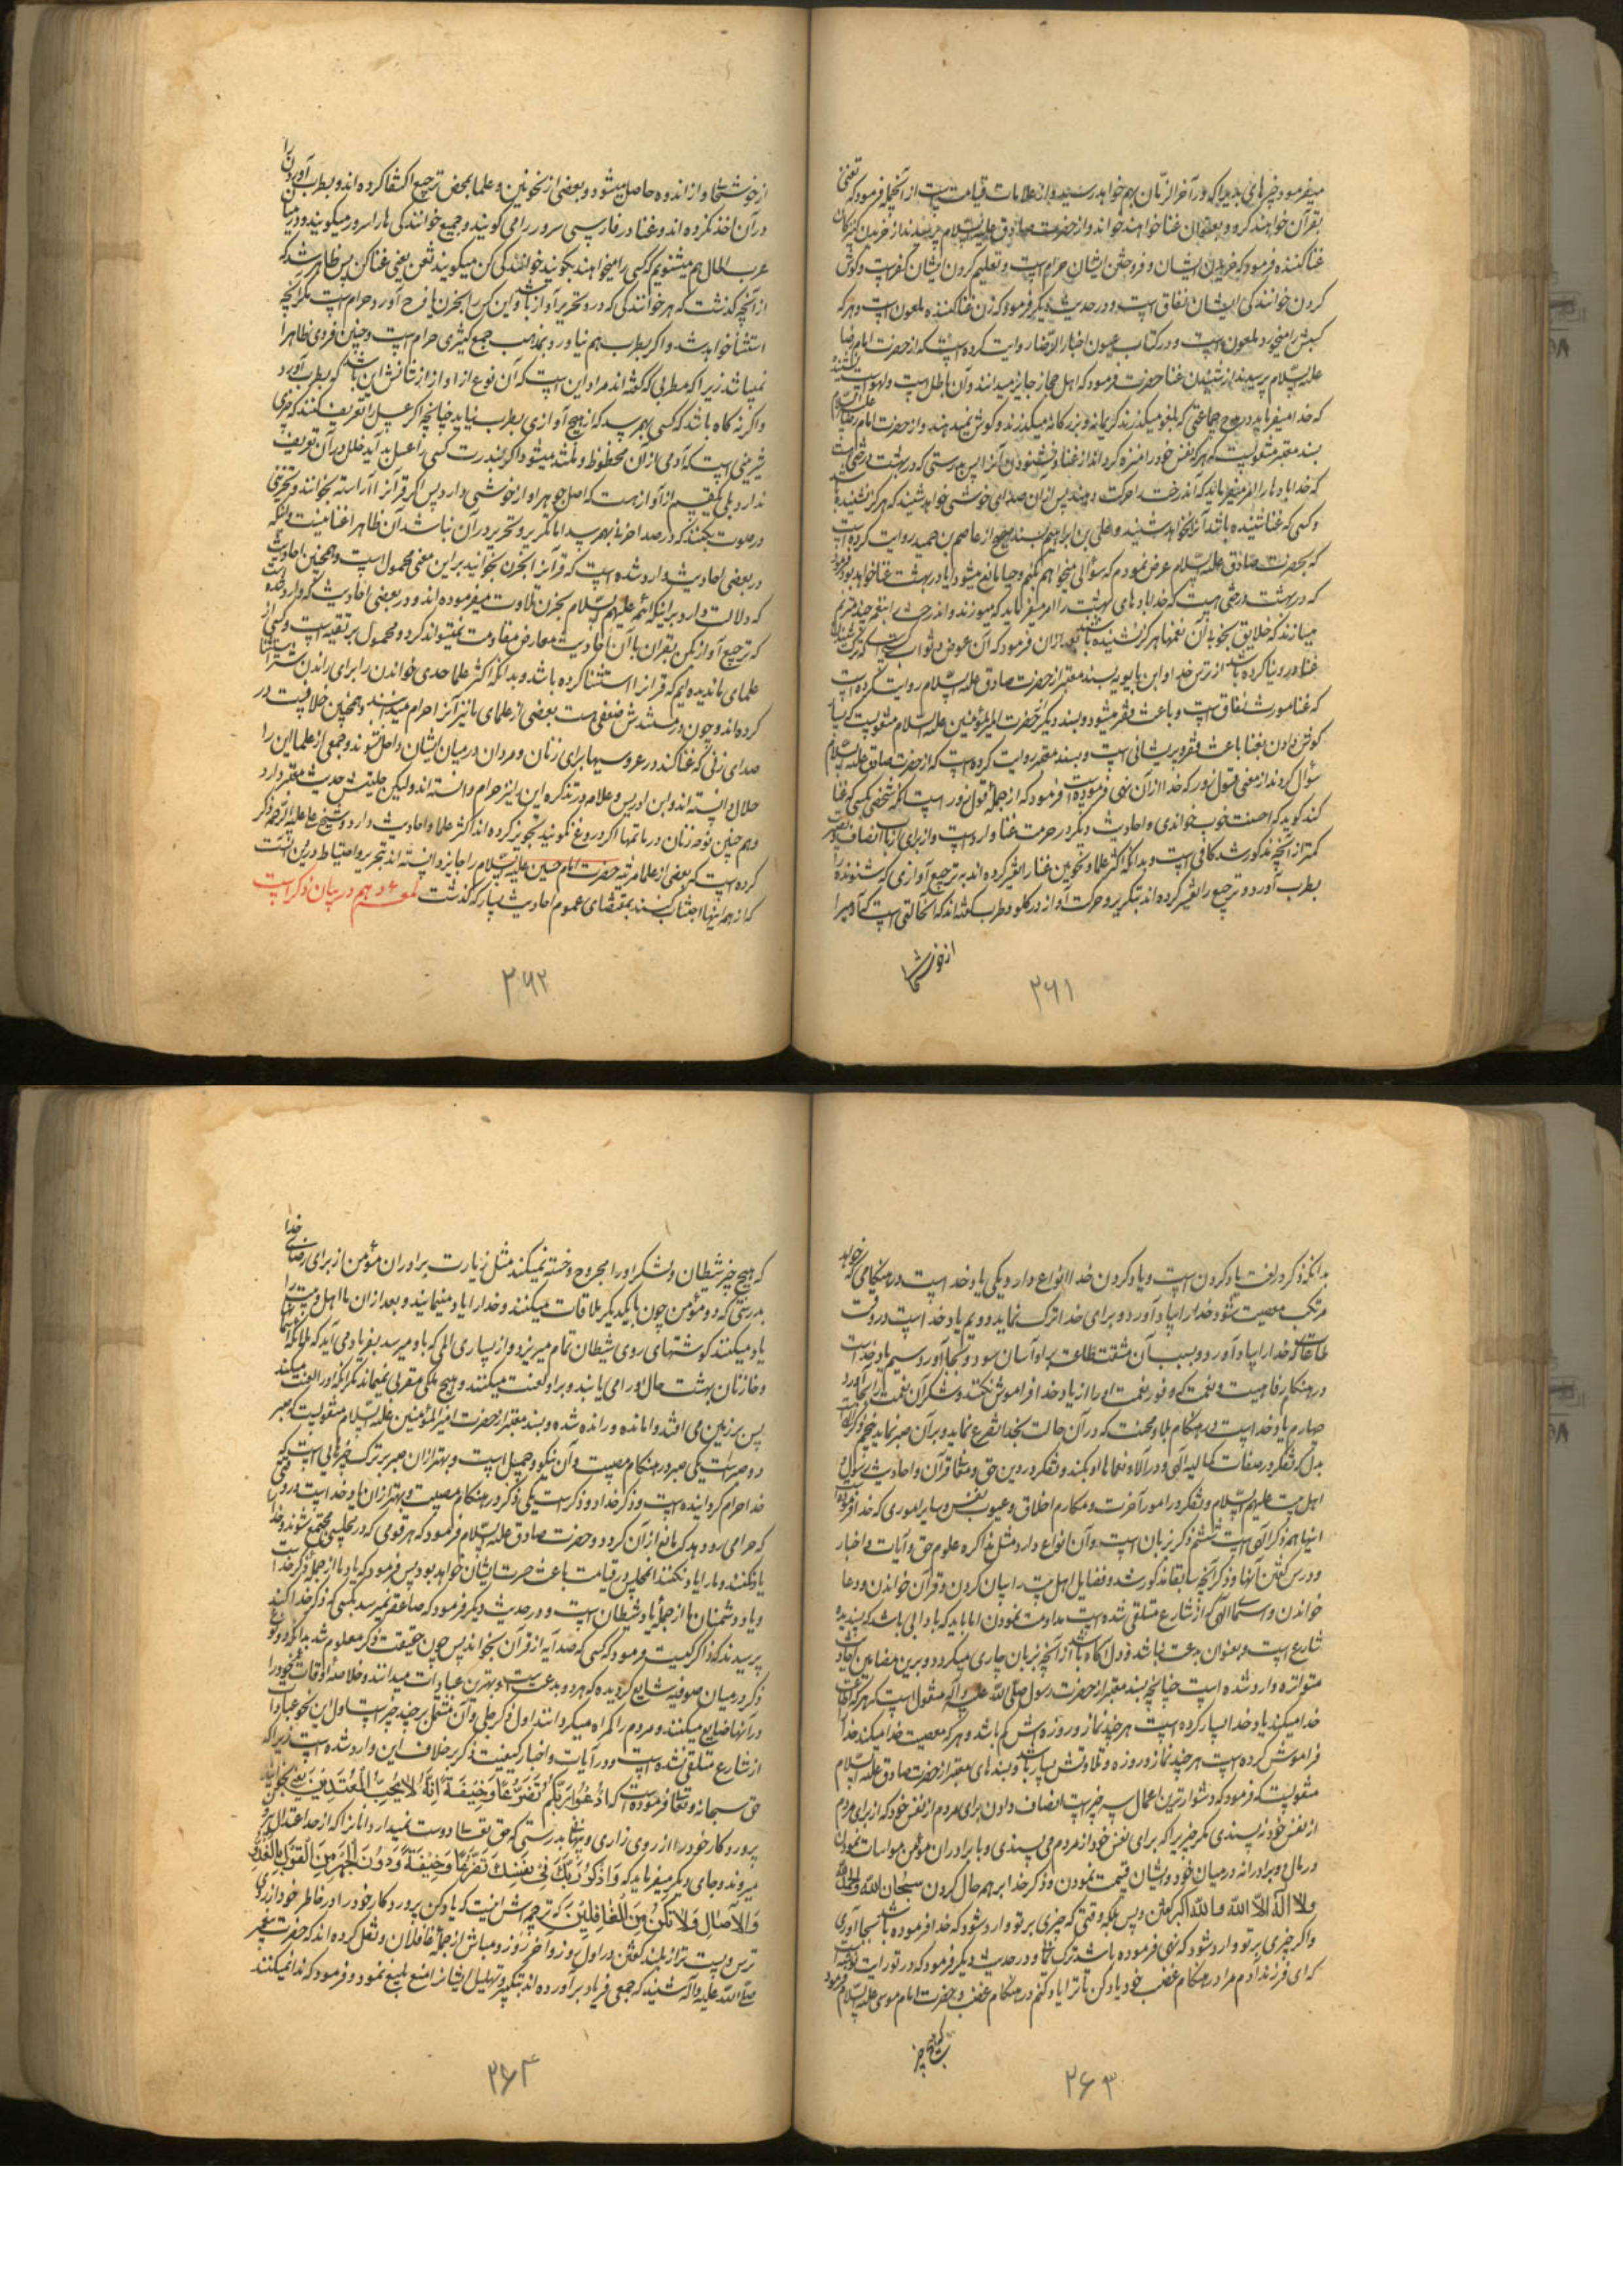 میفرمود چیزهای بدیرا که در آخر الزمان بهم خواهد رسید و از علامات قیامت است از آنجمله فرمود که تغنی
بقرآن خواهند کرد و بعنوان غنا خواهند خواند و از حضرت صادق علیه السلام پرسیدند از خریدن کنیزکان
غنا کننده فرمود که خریدن ایشان و فروختن ایشان حرام است و تعلیم کردن ایشان کفر است و گوش
کردن خوانندگی ایشان نفاق است و در حدیث دیگر فرمود که زن غنا کننده ملعون است و هر که
کسبش را میخورد ملعون است و در کتاب عیون اخبار الرضا روایت کرده است که از حضرت امام رضا
علیه السلام پرسیدند از شنیدن غنا حضرت فرمود که اهل حجاز جایز میدانند و آن باطل است و لهو است
که خدا میفرماید در مدح جماعتی که بلغو میگذرند کریمانه و بزرگانه میگذرند و گوش نمیدهند و از حضرت امام رضا علیه السلام
بسند معتبر منقولست که هر که نفس خود را منزه گرداند از غنا و نشنود آنرا پس بدرستی که در بهشت درختی است
که خدا بادها را امر میفرماید که آن درخت را حرکت دهند پس از آن صدای خوشی خواهد شنید که هرگز نشنیده باشد
و کسی که غنا شنیده باشد آنرا نخواهد شنید و علی بن ابراهیم بسند صحیح از عاصم بن حمید روایت کرده است
که بحضرت صادق علیه السلام عرض نمودم که سؤالی میخواهم بکنم و حیا مانع میشود آیا در بهشت غنا خواهد بود فرمود
که در بهشت درختی است که خدا بادهای بهشت را امر میفرماید که میوزند و آن درخت بنغمهٔ چند مترنم
میسازند که خلایق بخوبی آن نغمها هرگز نشنیده باشند بعد از آن فرمود که آن عوض و ثواب کسی است که ترک شنیدن
غنا در دنیا کرده باشد از ترس خدا و ابن بابویه بسند معتبر از حضرت صادق علیه السلام روایت کرده است
که غنا مورث نفاق است و باعث فقر میشود و بسند دیگر از حضرت امیر المؤمنین علیه السلام منقولست که بسیار
گوش دادن بغنا باعث فقر و پریشانی است و بسند معتبر روایت کرده است که از حضرت صادق علیه السلام
سؤال کردند از معنی قول زور که خدا از آن نهی فرموده است فرمود که از جملهٔ قول زور است آنکه شخصی بکسی که غنا
کند گوید که احسنت خوب خواندی و احادیث دیگر در حرمت غنا وارد است و از برای ارباب انصاف
کمتر از آنچه مذکور شد کافی است و بدانکه اکثر علما و نحویین غنا را تفسیر کرده اند به ترجیع آوازی که شنونده را
بطرب آورد و ترجیع را تفسیر کرده اند بتکریر و حرکت آواز در گلو و طرب گفته اند که آن حالتی است که آدمی را
از خوشحالی
۲۶۱
از خوشحالی و از اندوه حاصل میشود و بعضی از نحویین و علما بمحض ترجیع اکتفا کرده اند و بطرب آوردن را
در آن اخذ نکرده اند و غنا در فارسی سرود را می گویند و جمیع خوانندگی ها را سرود میگویند و در میان
عرب الحال هم میشنویم که کسی را میخواهند بگویند خوانندگی کن میگویند تغن یعنی غنا کن پس ظاهر شد که
از آنچه گذشت که هر خوانندگی که در و تحریر آواز باشد و این کس را بحزن یا فرح آورد حرام است مگر آنچه
استثنا خواهد شد و اگر بطرب هم نیاورد بمذهب جمع کثیری حرام است و چنین فردی ظاهرا
نمیباشد زیرا که مطربی که گفته اند مراد این است که آن نوع از آواز از شانش این باشد که بطرب آورد
و اگر نه گاه باشد که کسی بهم رسد که از هیچ آوازی بطرب نیاید چنانچه اگر عسل را تعریف کنند که چیزی
شیرینی است که آدمی از آن محظوظ و ملتذ میشود و اگر بندرت کسی را عسل بد آید خللی در آن تعریف
ندارد بلی یک قسم از آواز هست که اصل جوهر آواز خوشی دارد پس اگر قرآن را آراسته بخوانند و تحزنی
در صوت بکنند که در صدا حزنی بهم رسد اما تکریر و تحریر در آن نباشد آن ظاهرا غنا نیست و آنکه
در بعضی احادیث وارد شده است که قرآن را بحزن بخوانید بر این معنی محمول است و همچنین احادیث
که دلالت دارد بر اینکه ائمه علیهم السلام بحزن تلاوت میفرموده اند و در بعضی احادیث که وارد شده است
که ترجیع آواز بکن بقرآن با آن احادیث معارض مقاومت نمیتواند کرد و محمول بر تقیه است و کسی از
علمای ما ندیده ایم که قرآن را استثنا کرده باشد و بدانکه اکثر علما حدی خواندن را برای راندن شتر استثنا
کرده اند و چون در سندش ضعفی هست بعضی از علمای ما نیز آنرا حرام میدانند و همچنین خلافیست در
صدای زنی که غنا کند در عروسیها برای زنان و مردان در میان ایشان داخل نشوند و جمعی از علما این را
حلال دانسته اند و ابن ادریس و علامه در تذکره این را نیز حرام دانسته اند و لیکن حلیتش حدیث معتبر دارد
و هم چنین نوحهٔ زنان در ماتمها اگر دروغ نگویند تجویز کرده اند اکثر علما و احادیث دارد و شیخ علی علیه الرحمه ذکر
کرده است که بعضی از علما مرثیهٔ حضرت امام حسین علیه السلام را جایز دانسته اند بتحریر و احتیاط در این است
که از همه اینها اجتناب کنند بمقتضای عموم احادیث بسیار که گذشت لمعهٔ دهم در بیان ذکر است
۲۶۲
بدانکه ذکر در لغت یاد کردن است و یاد کردن خدا انواع دارد یکی یاد خدا است در هنگامی که خواهد
مرتکب معصیت شود خدا را بیاد آورد و برای خدا ترک نماید دویم یاد خدا است در وقت
طاعات که خدا را بیاد آورد و بسبب آن مشقت طاعت بر او آسان شود و بجا آورد سیم یاد خدا است
در هنگام رفاهیت و نعمت که وفور نعمت او را از یاد خدا فراموش نکند و شکر آن نعمت را بجا آورد
چهارم یاد خدا است در هنگام بلا و محنت که در آن حالت بخدا تضرع نماید و بر آن صبر نماید پنجم ذکر خدا
بدل که تفکر در صفات کمالیه الهی و در آلا و نعماهای او بکند و تفکر در دین حق و معانی قرآن و احادیث رسول و
اهل بیت علیهم السلام و تفکر در امور آخرت و مکارم اخلاق و عیوب نفس و سایر اموری که خدا فرموده است
اینها همه ذکر الهی است ششم ذکر زبان است و آن انواع دارد مثل مذاکره علوم حق و آیات و اخبار
و درس گفتن آنها و ذکر آنچه سابقا مذکور شد و فضایل اهل بیت را بیان کردن و قرآن خواندن و دعا
خواندن و اسماء الهی که از شارع متلقی شده است مداومت نمودن اما باید که با دابی باشد که پسندیده
شارع است و بعنوان بدعت نباشد و دل آگاه باشد از آنچه بزبان جاری میگردد و برین مضامین احادیث
متواتره وارد شده است چنانچه بسند معتبر از حضرت رسول صلی الله علیه و آله منقول است که هر که اطاعت
خدا میکند یاد خدا بسیار کرده است هر چند نماز و روزه اش کم باشد و هر که معصیت خدا میکند خدا را
فراموش کرده است هر چند نماز و روزه و تلاوتش بسیار باشد و بسندهای معتبر از حضرت صادق علیه السلام
منقولست که فرمود که دشوارترین اعمال سه چیز است انصاف دادن برای مردم از نفس خود که از برای مردم
از نفس خود نه پسندی مگر چیزیرا که برای نفس خود از مردم می پسندی و با برادران مؤمن مواسات نمودن
در مال و برادرانه در میان خود و ایشان قسمت نمودن و ذکر خدا بر همه حال کردن سبحان الله و الحمد لله
و لا اله الا الله و الله اکبر گفتن و بس بلکه وقتی که چیزی بر تو وارد شود که خدا فرموده باشد بجا آوری
و اگر چیزی بر تو وارد شود که نهی فرموده باشد ترک نمائی و در حدیث دیگر فرمود که در تورات نوشته است
که ای فرزند آدم مرا در هنگام غضب خود یاد کن تا ترا یاد کنم در هنگام غضب خود و حضرت امام موسی علیه السلام فرمود
که هیچ چیز
۲۶۳
که هیچ چیز شیطان و لشکر او را مجروح و خسته نمیکند مثل زیارت برادران مؤمن از برای رضای خدا
بدرستی که دو مؤمن چون با یکدیگر ملاقات میکنند و خدا را یاد مینمایند و بعد از آن ما اهل بیت را
یاد میکنند گوشتهای روی شیطان تمام میریزد و از بسیاری المی که باو میرسد بفریاد می آید که ملائکه آسمانها
و خازنان بهشت حال او را می یابند و بر او لعنت میکنند و هیچ ملک مقربی نمیماند مگر آنکه او را لعنت میکند
پس بر زمین می افتد وا مانده و رانده شده و بسند معتبر از حضرت امیر المؤمنین علیه السلام منقولست که صبر
دو صبر است یکی صبر در هنگام مصیبت و آن نیکو و جمیل است و بهتر از آن صبر بر ترک چیزهایی است که
خدا حرام گردانیده است و ذکر خدا دو ذکر است یکی ذکر در هنگام مصیبت و بهتر از آن یاد خدا است در وقتی
که حرامی رو دهد که مانع از آن گردد و حضرت صادق علیه السلام فرمود که هر قومی که در مجلسی مجتمع شوند و خدا را
یاد نکنند و ما را یاد نکنند آن مجلس در قیامت باعث حسرت ایشان خواهد بود پس فرمود که یاد ما از جملهٔ ذکر خدا است
و یاد دشمنان ما از جملهٔ یاد شیطان است و در حدیث دیگر فرمود که صاعقه نمیرسد بکسی که ذکر خدا کند
پرسیدند که ذاکر کیست فرمود که کسی که صد آیه از قرآن بخواند پس چون حقیقت ذکر معلوم شد بدانکه دو نوع
ذکر در میان صوفیه شایع گردیده که هر دو بدعت است و بهترین عبادات میدانند و خلاصهٔ اوقات خود را
در آنها ضایع میکنند و مردم را گمراه میگردانند اول ذکر جلی و آن مشتمل بر چند چیز است اول این نحو عبادات
از شارع متلقی نشده است و در آیات و اخبار کیفیت ذکر بر خلاف این وارد شده است زیرا که
حق سبحانه و تعالی فرموده است که ادْعُوا رَبَّکُمْ تَضَرُّعًا وَخِیفَةً إِنَّهُ لَا یُحِبُّ الْمُعْتَدِینَ یعنی بخوانید
پروردگار خود را از روی زاری و پنهان بدرستی که حق تعالی دوست نمیدارد آنانرا که از حد اعتدال بدر
میروند و جای دیگر میفرماید که وَاذْکُرْ رَبَّکَ فِی نَفْسِکَ تَضَرُّعًا وَخِیفَةً وَدُونَ الْجَهْرِ مِنَ الْقَوْلِ بِالْغُدُوِّ
وَالْآصَالِ وَلَا تَکُنْ مِنَ الْغَافِلِینَ که ترجمه اش اینست که یاد کن پروردگار خود را در خاطر خود از روی
ترس و پست تر از بلند گفتن در اول روز و آخر روز و مباش از جملهٔ غافلان و نقل کرده اند که حضرت پیغمبر
صلی الله علیه و آله شنید که جمعی فریاد بر آورده اند بتکبیر و تهلیل ایشانرا منع بلیغ نمود و فرمود که ندا نمیکنند
۲۶۴